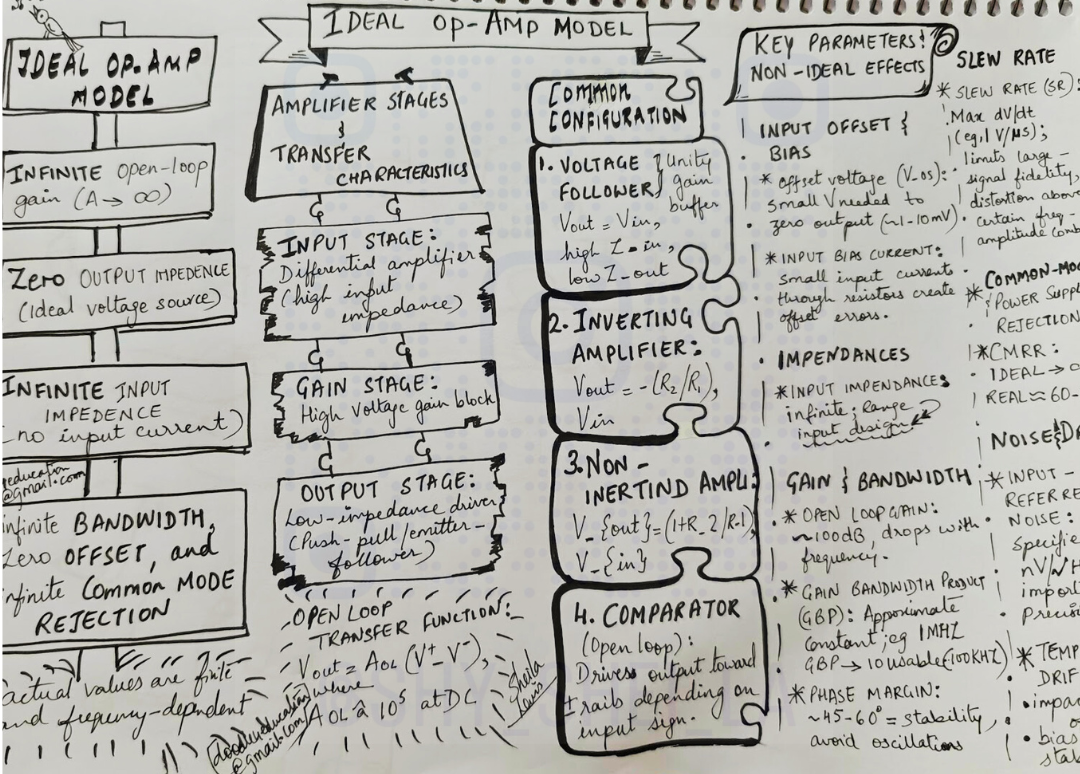 IDEAL OP-AMP MODEL
IDEAL OP-AMP
MODEL
INFINITE open-loop
gain (A→ ∞)
Zero OUTPUT IMPEDENCE
(Ideal voltage source)
INFINITE INPUT
IMPEDENCE
no input current)
@gmail.com
infinite BANDWIDTH,
Zero OFFSET, and
infinite Common MODE
REJECTION
actual values are finite
and frequency-dependent
AMPLIFIER STAGES
&
TRANSFER
CHARACTERISTICS
INPUT STAGE:
Differential amplifier
(high input
impedance)
GAIN STAGE:
High voltage gain block
OUTPUT STAGE:
Low-impedance driver
(Push-pull/emitter-
follower)
OPEN LOOP
TRANSFER FUNCTION:
Vout = AOL (V+-V-),
where
AOL â 10⁵ at DC
@gmail.com
Sheila
Lewis
COMMON
CONFIGURATION
1. VOLTAGE { Unity
FOLLOWER} gain
buffer
Vout = Vin,
high Z-in,
low Z-out
2. INVERTING
AMPLIFIER:
Vout = -(R2/R1),
Vin
3. NON-
INERTIND AMPLI:
V_{out}=(1+R_2/R-1)
V_{in}
4. COMPARATOR
(Open loop):
Drives output toward
± rails depending on
input sign.
KEY PARAMETERS:
NON-IDEAL EFFECTS
INPUT OFFSET &
BIAS
* offset voltage (V-os):
Small V needed to
zero output (~1-10mV)
* INPUT BIAS CURRENT:
Small input currents
through resistors create
offset errors.
IMPENDANCES
* INPUT IMPENDANCES
infinite; Range
input design
GAIN & BANDWIDTH
* OPEN LOOP GAIN:
~100dB, drops with
frequency.
* GAIN BANDWIDTH PRODUCT
(GBP): Approximate
Constant; eg 1MHZ
GBP → 10 usable(~100KHZ)
* PHASE MARGIN:
~45-60° = stability,
avoid oscillations
SLEW RATE
* SLEW RATE (SR):
Max dV/dt
(eg, 1 V/µs);
limits large-
signal fidelity,
distortion above
certain freq-
amplitude comb
COMMON-MO
& POWER SUPPL
REJECTION
* CMRR:
IDEAL →
REAL ≈ 60-
NOISE & DR
* INPUT-
REFERRE
NOISE:
Specifie
nV/√H
import
Precisi
* TEMP
DRIF
impa
bias
stab